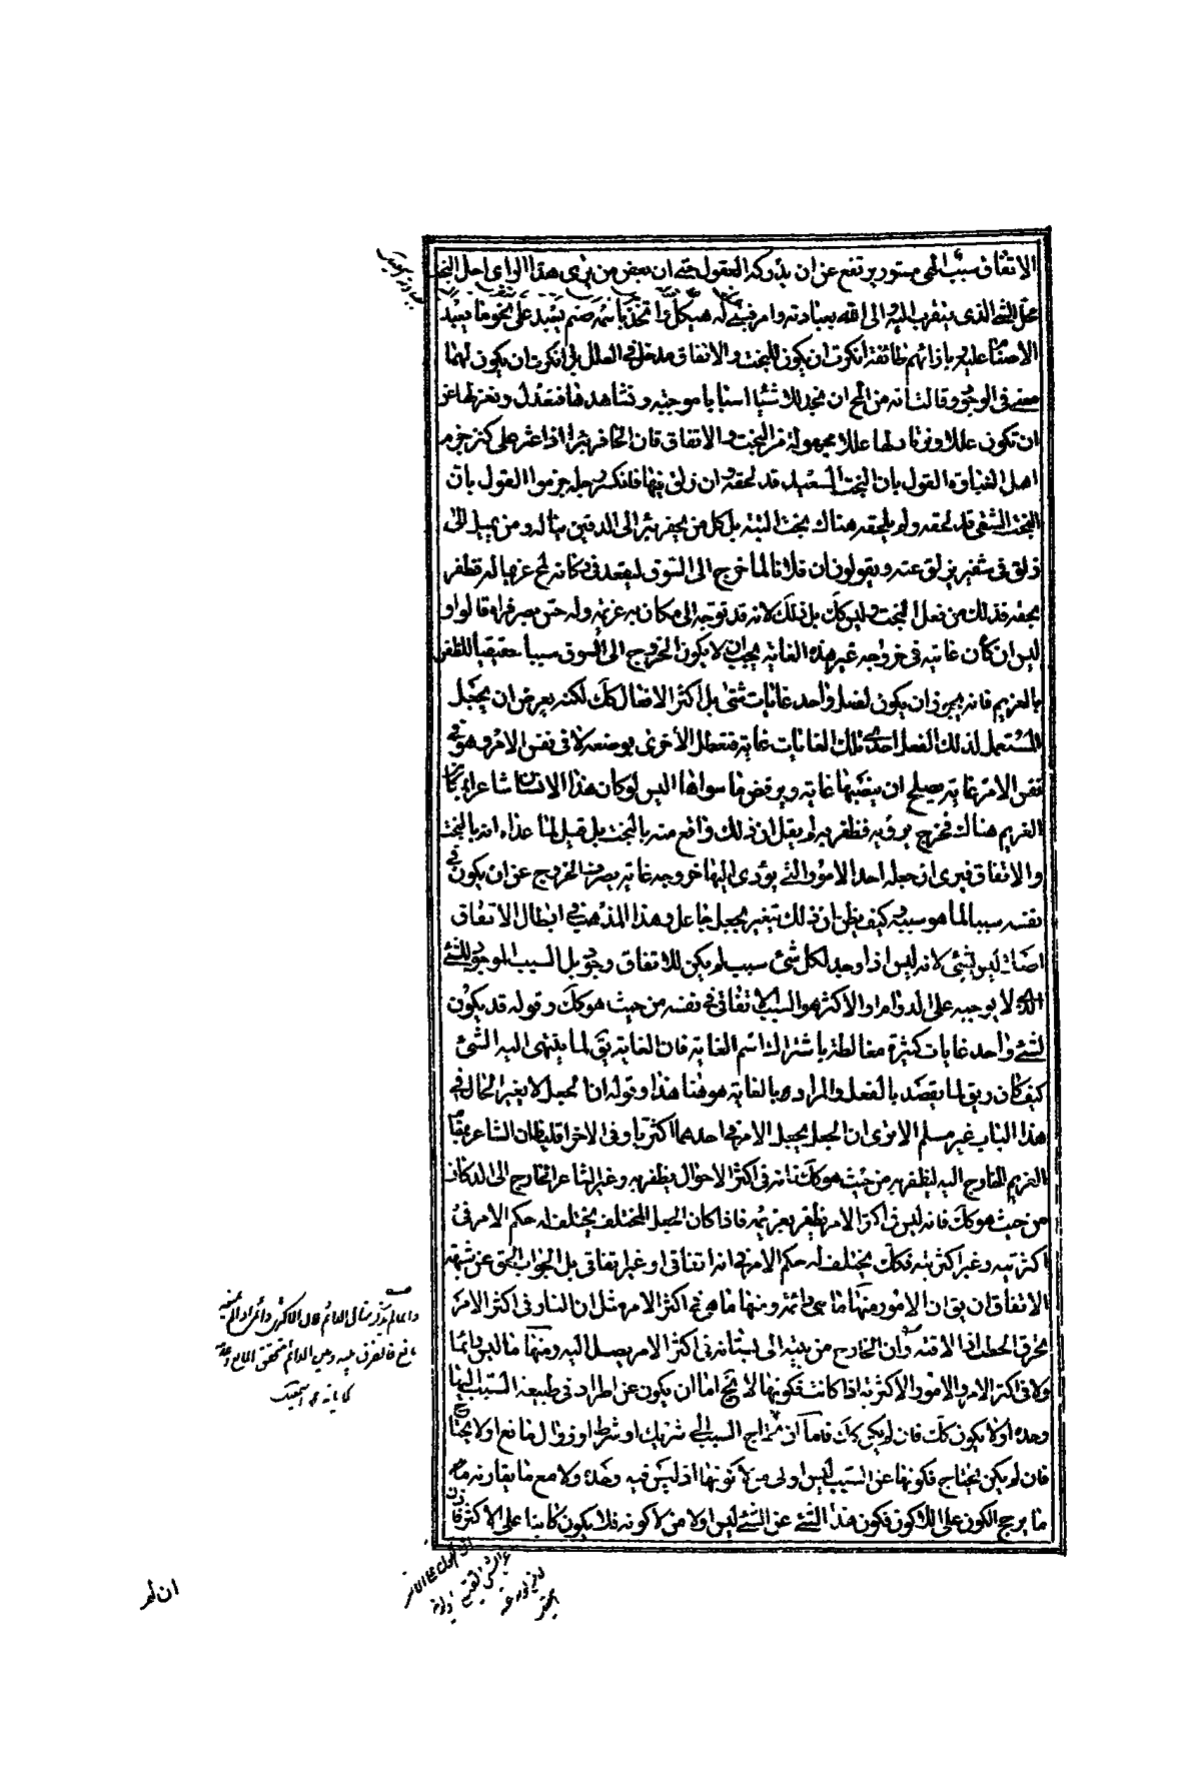 الاتفاق سبب الهى مستور يرتفع عن ان يدركه العقول حتى ان بعض من يرى هذا الراى احل البخت
محل الشئ الذى يتقرب اليه والى الله بعبادته وامر فبنى له هيكل واتخذ باسمه صنم يعبد على نحو ما يعبد
الاصنام عليه وبازائهم طائفة انكرت ان يكون للبخت والاتفاق مدخل فى العلل بل انكرت ان يكون لهما
معنى فى الوجود وقالت انه من المح ان نجد للاشياء اسبابا موجبة ونشاهدها فنعدل ونعزلها عن
ان تكون عللا ونرتاد لها عللا مجهولة من البخت والاتفاق فان الحافر بئرا اذا عثر على كنز جزم
اهل الغباوة القول بان البخت السعيد قد لحقه وان زلق فيها فانكسر رجله جزموا القول بان
البخت الشقى قد لحقه ولم يلحقه هناك بخت البتة بل كل من يحفر بئرا الى الدفين يناله ومن يميل الى
زلق فى شفير يزلق عنه ويقولون ان فلانا لما خرج الى السوق ليقعد فى دكانه لمح غريما له فظفر
بحقه فذلك من فعل البخت وليس كك بل ذلك لانه قد توجه الى مكان به غريمه وله حس بصر فراه قالوا و
ليس ان كان غايته فى خروجه غير هذه الغاية يجب ان لا يكون الخروج الى السوق سببا حقيقيا للظفر
بالغريم فانه يجوز ان يكون لفعل واحد غايات شتى بل اكثر الافعال كك لكنه يعرض ان يجعل
المستعمل لذلك الفعل احدى تلك الغايات غاية فتعطل الأخرى بوضعه لا فى نفس الامر وهو فى
نفس الامر غاية يصلح ان ينصبها غاية ويرفض ما سواها اليس لو كان هذا الانسان شاعرا بمقام
الغريم هناك فخرج يرومه فظفر به لم يقل ان ذلك واقع منه بالبخت بل قيل لما عداه انه بالبخت
والاتفاق فيرى ان جعله احد الامور التى يؤدى اليها خروجه غاية يصرف الخروج عن ان يكون فى
نفسه سببا لما هو سبب له كيف يظن ان ذلك تتغير بجعل جاعل وهذا المذهب فى ابطال الاتفاق
اصلا ليس بشئ لانه ليس اذا وجد لكل شئ سبب لم يكن للاتفاق وجود بل السبب الموجود للشئ
الذى لا يوجبه على الدوام او الاكثر هو السبب الاتفاقى فى نفسه من حيث هو كك وقوله قد يكون
لشئ واحد غايات كثيرة مغالطة باشتراك اسم الغاية فان الغاية يق لما ينتهى اليه الشئ
كيف كان ويق لما يقصد بالفعل والمراد بالغاية ههنا هذا وقوله ان الجعل لا يغير الحال فى
هذا الباب غير مسلم الا نرى ان الجعل يجعل الامر فى احدهما اكثريا وفى الاخر اقليا فان الشاعر بمقام
الغريم الخارج اليه ليظفر به من حيث هو كك فانه فى اكثر الاحوال يظفر به وغير الشاعر الخارج الى الدكان
من حيث هو كك فانه ليس فى اكثر الامر يظفر بغريمه فاذا كان الجعل المختلف يختلف له حكم الامر فى
اكثريته وغير اكثريته فكك يختلف له حكم الامر فى انه اتفاقى او غير اتفاقى بل الجواب الحق عن شبهة
الاتفاق ان يق ان الامور منها ما هى دائمة ومنها ما هى فى اكثر الامر مثل ان النار فى اكثر الامر
يحرق الحطب اذا لاقته وان الخارج من بيته الى بستانه فى اكثر الامر يصل اليه ومنها ما ليس دائما
ولا فى اكثر الامر والامور الاكثرية اذا كانت فكونها لا يخ اما ان يكون عن اطراد فى طبيعة السبب اليها
وحده او لا يكون كك فان لم يكن كك فاما ان يحتاج السبب الى شريك او شرط او زوال مانع او لا يحتاج
فان لم يكن يحتاج فكونها عن السبب ليس اولى من لا كونها اذ ليس فيه وحده ولا مع ما يقارنه
ما يرجح الكون على اللاكون فكون هذا الشئ عن الشئ ليس اولى من لا كونه فلا يكون كائنا على الاكثر فاذن
ان لم